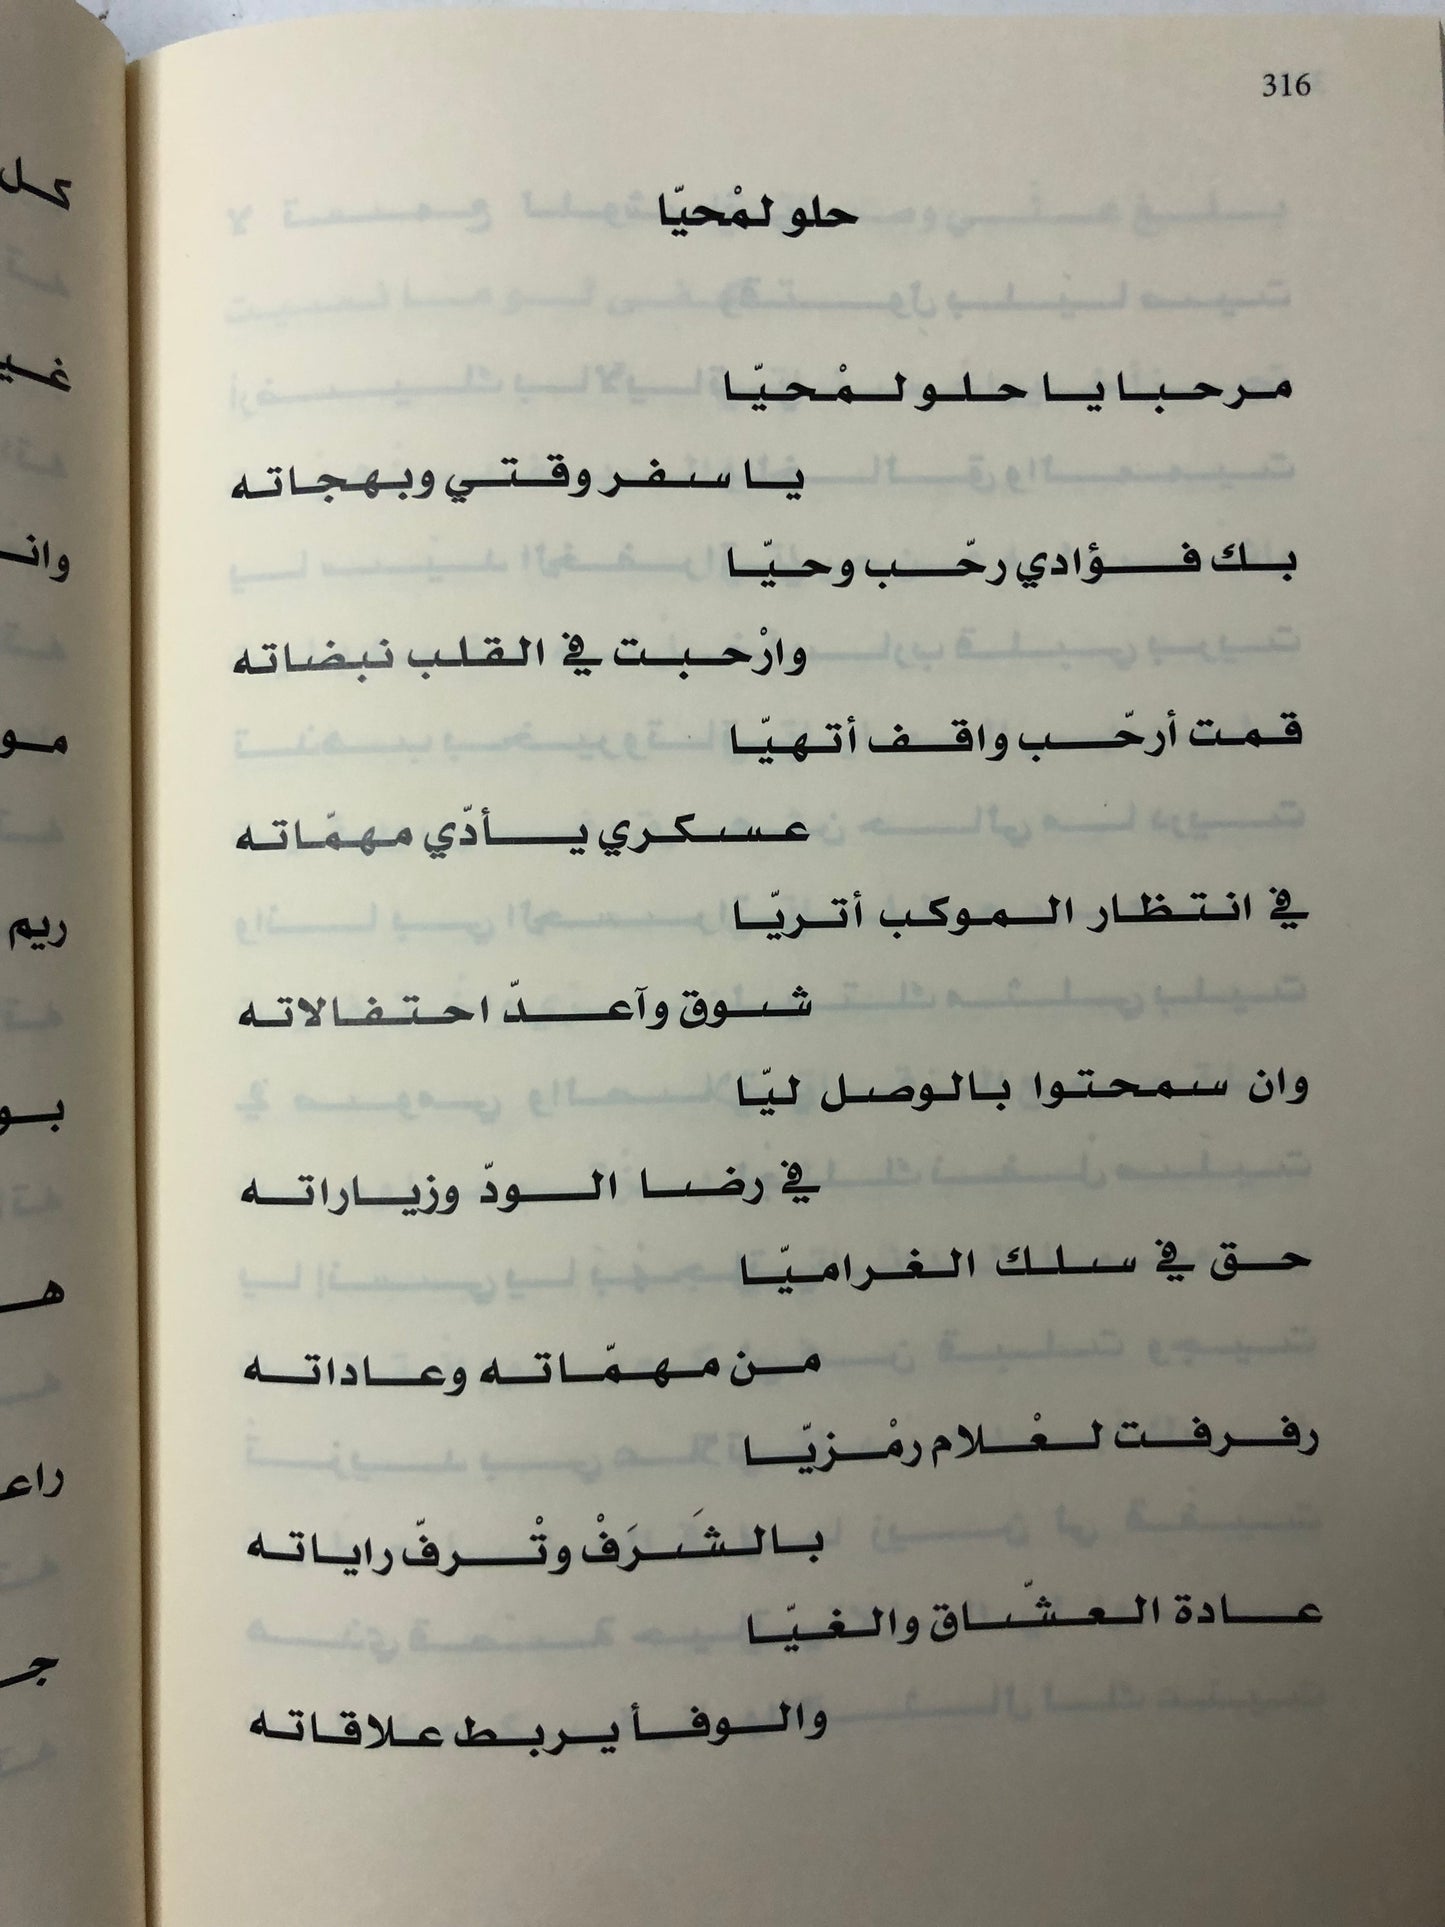 316
حلو لمْحيّا
مرحبا يا حلو لمْحيّا
يا سفر وقتي وبهجاته
بك فؤادي رحّب وحيّا
وارْحبت في القلب نبضاته
قمت أرحّب واقف أتهيّا
عسكري يأدّي مهمّاته
في انتظار الموكب أتريّا
شوق وآعدّ احتفالاته
وان سمحتوا بالوصل ليّا
في رضا الودّ وزياراته
حق في سلك الغراميّا
من مهمّاته وعاداته
رفرفت لعْلام رمْزيّا
بالشَرَفْ وتْرفّ راياته
عادة العشّاق والغيّا
والوفأ يربط علاقاته
وانا
ريم